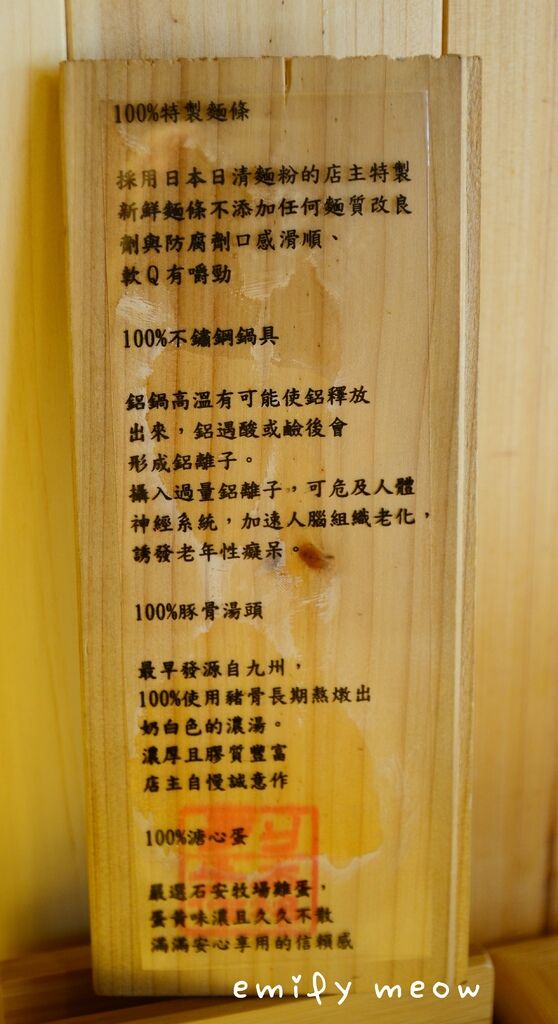 100%特製麵條
採用日本日清麵粉的店主特製
新鮮麵條不添加任何麵質改良
劑與防腐劑口感滑順、
軟Q有嚼勁
100%不鏽鋼鍋具
鋁鍋高溫有可能使鋁釋放
出來，鋁遇酸或鹼後會
形成鋁離子。
攝入過量鋁離子，可危及人體
神經系統，加速人腦組織老化，
誘發老年性癡呆。
100%豚骨湯頭
最早發源自九州，
100%使用豬骨長期熬燉出
奶白色的濃湯。
濃厚且膠質豐富
店主自慢誠意作
100%溏心蛋
嚴選石安牧場雞蛋，
蛋黃味濃且久久不散
滿滿安心享用的信賴感
emify meow